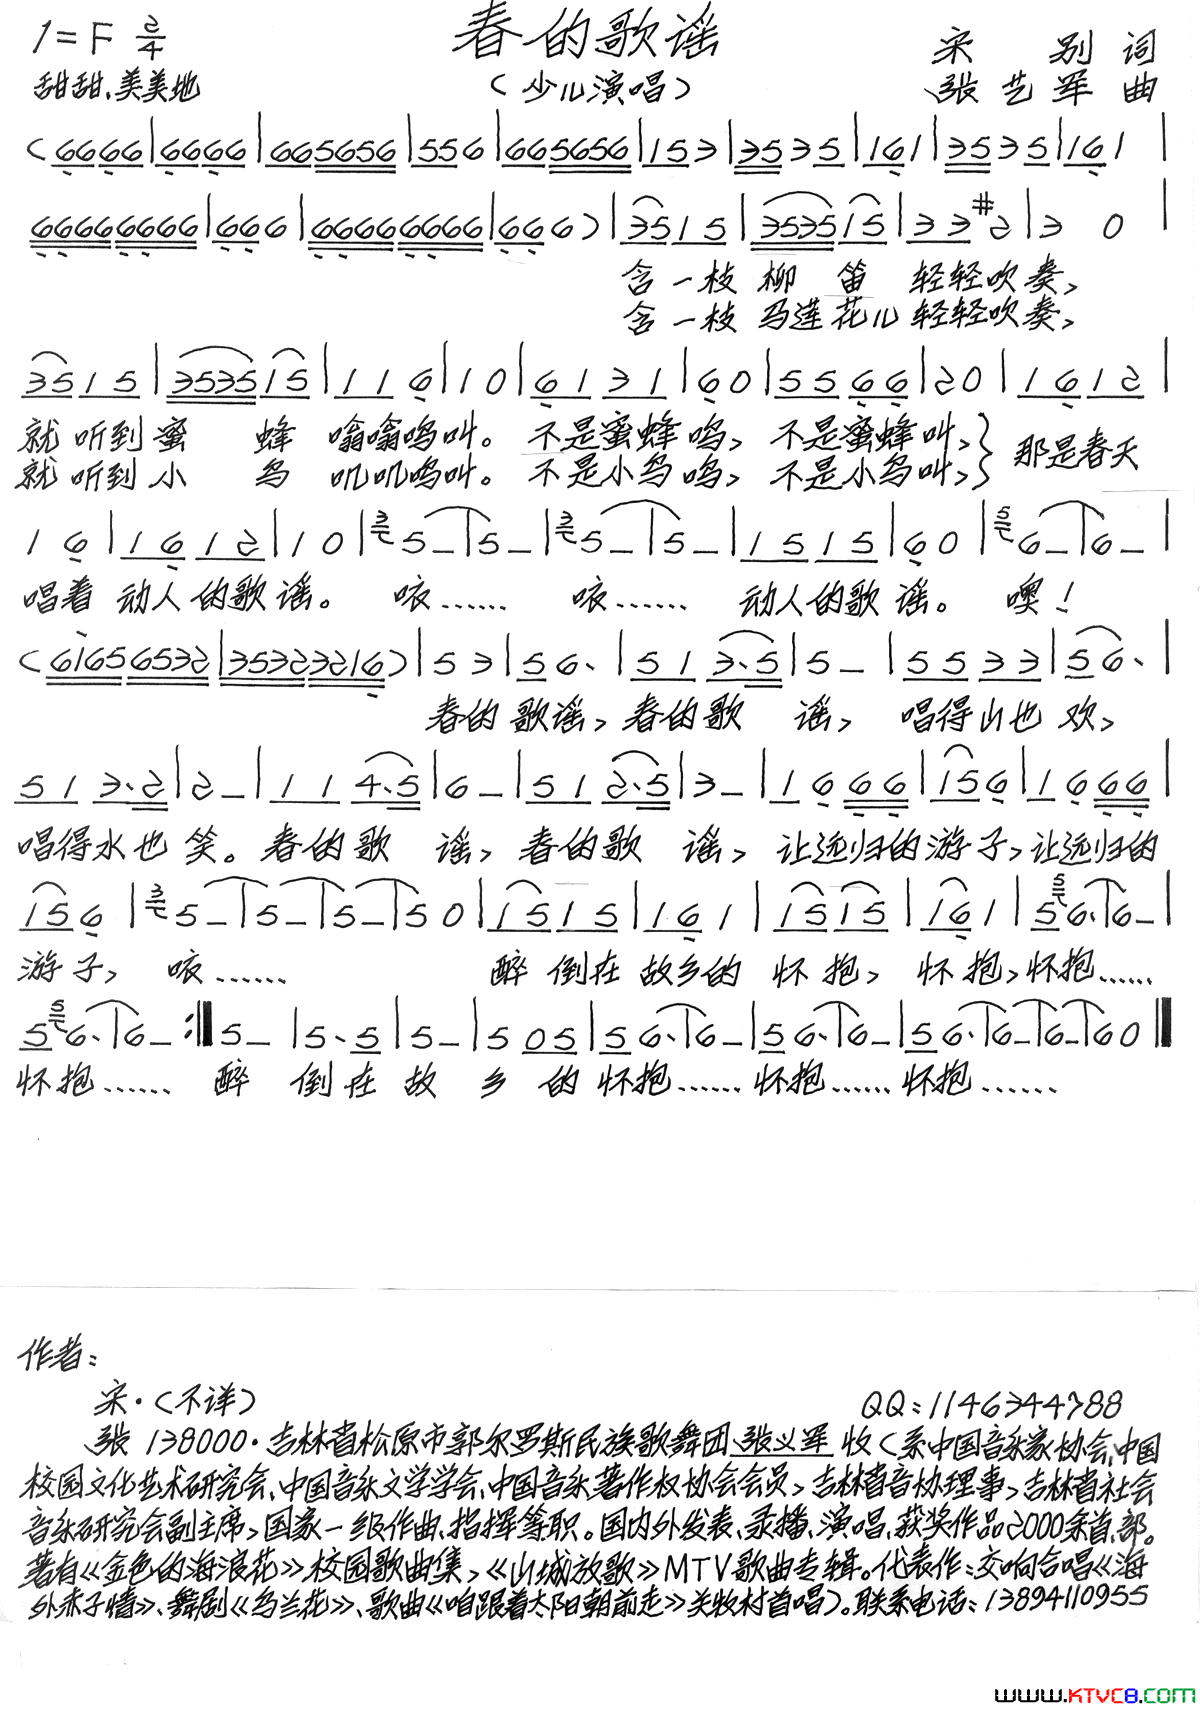 1=F 2/4
春的歌谣
宋 别 词
甜甜、美美地
(少儿演唱)
张艺军 曲
(6666|6666|665656|556|665656|153|3535|161|3535|161|
66666666|666|66666666|666)|3515|353515|33#2|3 0|
含一枝柳笛 轻轻吹奏,
含一枝马莲花儿轻轻吹奏,
3515|353515|116|10|6131|60|5566|20|1612|
就听到蜜 蜂 嗡嗡鸣叫。不是蜜蜂鸣,不是蜜蜂叫,} 那是春天
就听到小 鸟 叽叽鸣叫。不是小鸟鸣,不是小鸟叫,}
16|1612|10|3 5–|5–|3 5–|5–|1515|60|5 6–|6–|
唱着 动人的歌谣。 咳…… 咳…… 动人的歌谣。 噢!
(61656532|35323216)|53|56.|513.5|5–|5533|56.|
春的歌谣,春的歌 谣, 唱得山也欢,
513.2|2–|114.5|6–|512.5|3–|1666|156|1666|
唱得水也笑。春的歌 谣,春的歌 谣,让远归的游子,让远归的
156|3 5–|5–|5–|50|1515|161|1515|161|5 5 6.|6–|
游子, 咳…… 醉倒在故乡的怀抱,怀抱,怀抱……
5 5 6.|6–:|5–|5.5|5–|505|56.|6–|56.|6–|56.|6–|6–|60|
怀抱…… 醉 倒在故 乡 的怀抱……怀抱……怀抱……
作者:
宋·(不详)
QQ:1146344788
张 138000·吉林省松原市郭尔罗斯民族歌舞团 张义军 收(系中国音乐家协会、中国
校园文化艺术研究会、中国音乐文学学会、中国音乐著作权协会会员,吉林省音协理事,吉林省社会
音乐研究会副主席,国家一级作曲、指挥等职。国内外发表、录播、演唱、获奖作品2000余首、部。
著有《金色的海浪花》校园歌曲集,《山城放歌》MTV歌曲专辑。代表作:交响合唱《海
外赤子情》、舞剧《乌兰花》、歌曲《咱跟着太阳朝前走》关牧村首唱)。联系电话:13894110955
www.KTVC8.com